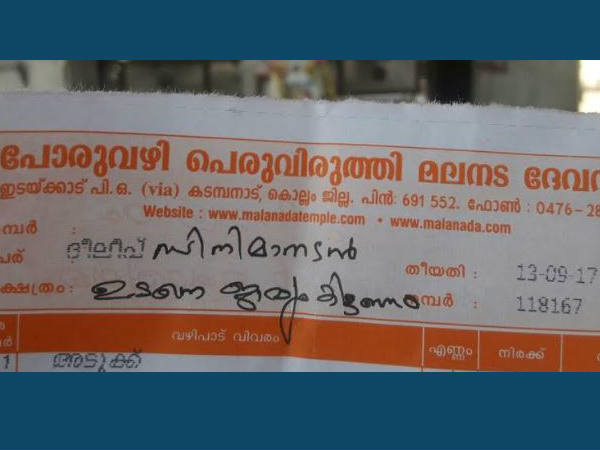 പോരുവഴി പെരുവിരുത്തി മലനട ദേവ
ഇടയ്ക്കാട് പി.ഒ. (via) കടമ്പനാട്, കൊല്ലം ജില്ല. പിൻ: 691 552. ഫോൺ : 0476-28
Website : www.malanadatemple.com • www.malanada.com
മ്പർ :
പേര് ദീലീപ് സിനിമാനടൻ തീയതി : 13-09-17
ക്ഷത്രം: ഉടനെ ജാമ്യം കിട്ടണം മ്പർ : 118167
വഴിപാട് വിവരം എണ്ണം നിരക്ക്
1 അടുക്ക്